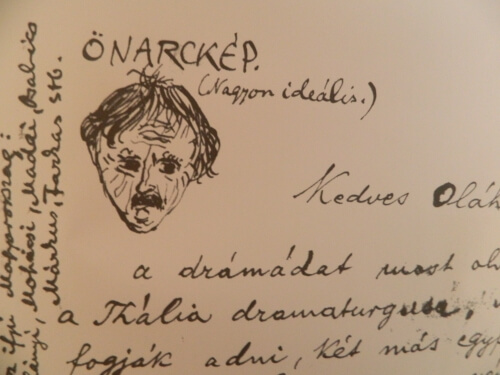 ÖNARCKÉP.
(Nagyon ideális.)
Kedves Oláh
a drámádat most
a Thália dramaturgja,
fogják adni, két más
ifjú Magyarország:
Mohácsi, Madái, Babits
Márkus, Farkas stb.